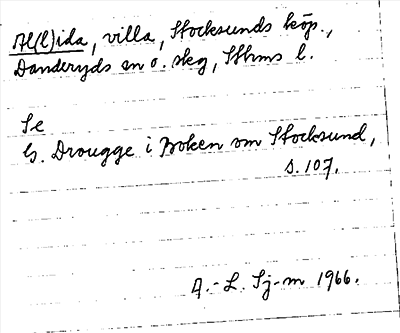 Al(l)ida, villa, Stocksunds köp.,
Danderyds sn o. skg, Sthms l.
Se
G. Drougge i Boken om Stocksund,
s. 107.
A.-L. Sj-m 1966.